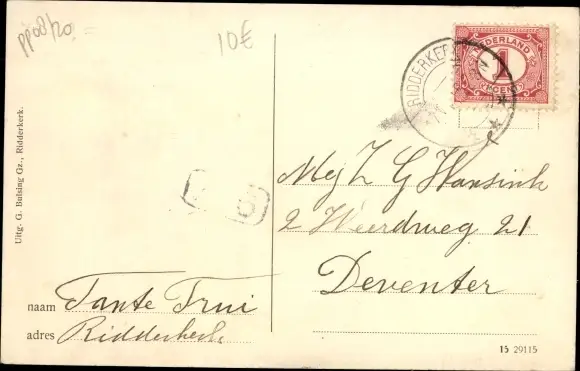 pp08/20
10€
RIDDERKER
NEDERLAND
1
Uitg. G. Bulsing Gz., Ridderkerk.
Mej Z G Hansink
2 Weerdweg 21
Deventer
naam Tante Trui
adres Ridderkerk
15 29115